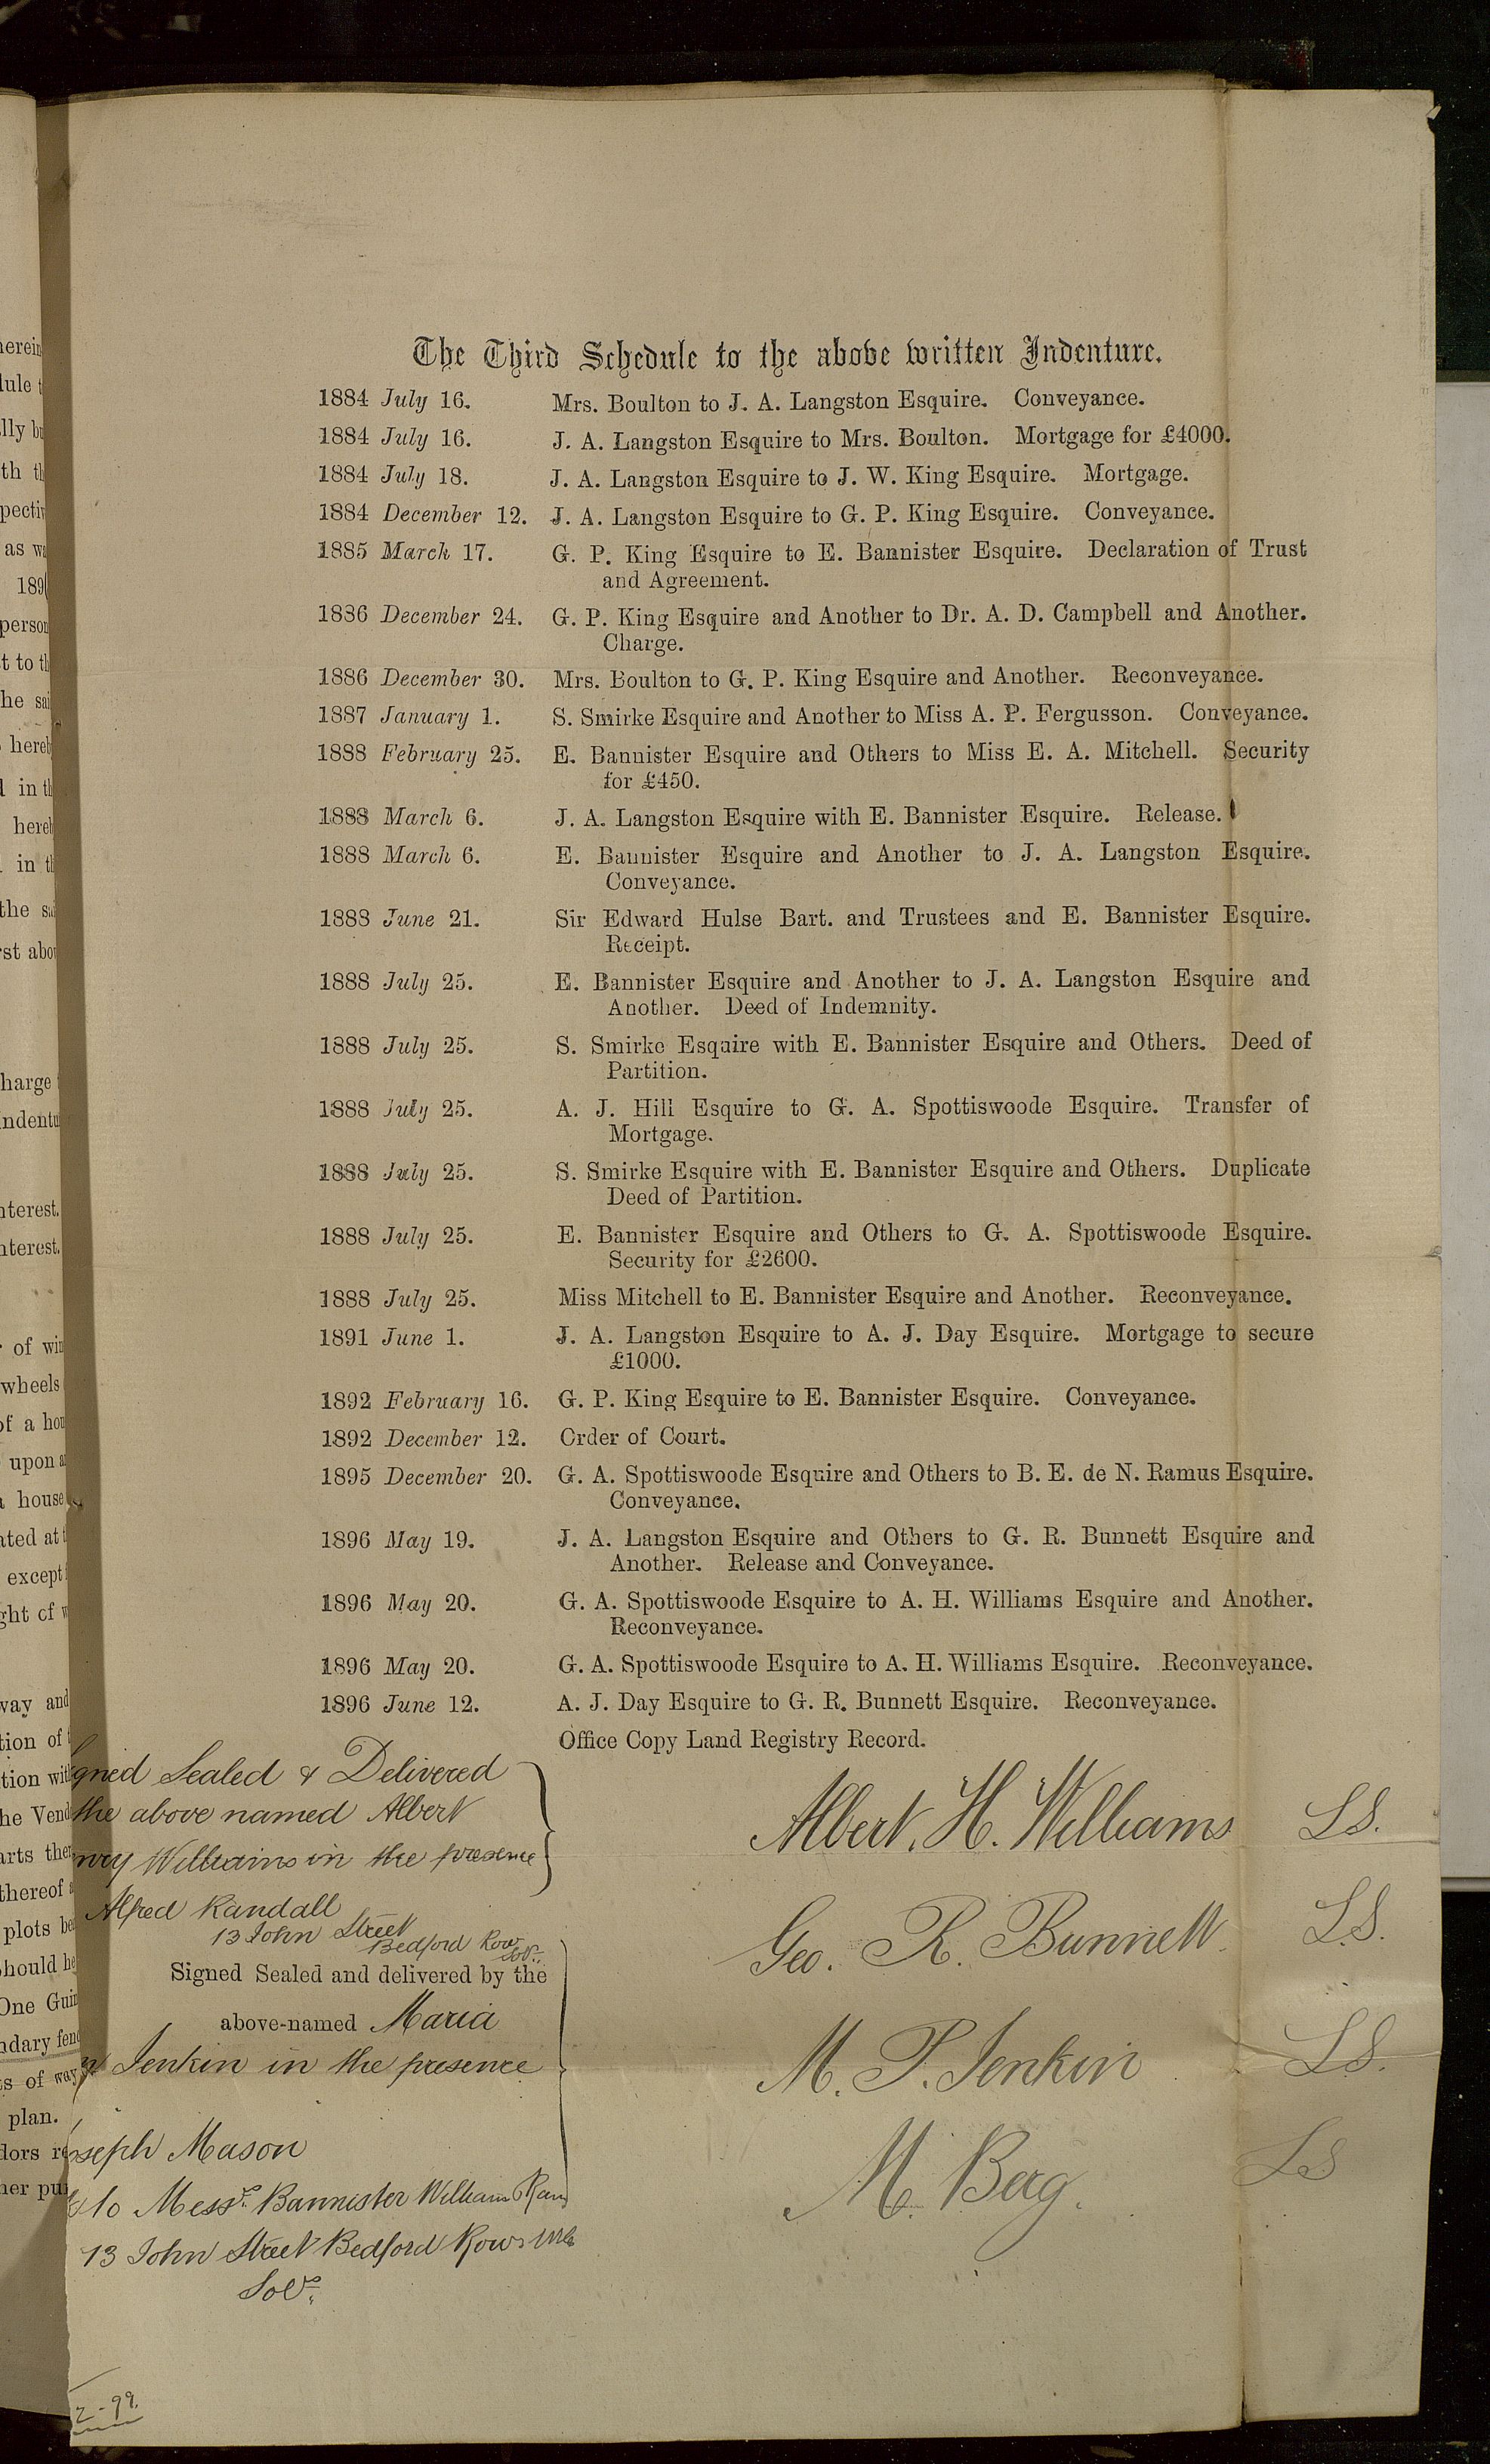 The Third Schedule to the above written Indenture.
1884 July 16. Mrs. Boulton to J. A. Langston Esquire. Conveyance.
1884 July 16. J. A. Langston Esquire to Mrs. Boulton. Mortgage for £4000.
1884 July 18. J. A. Langston Esquire to J. W. King Esquire. Mortgage.
1884 December 12. J. A. Langston Esquire to G. P. King Esquire. Conveyance.
1885 March 17. G. P. King Esquire to E. Bannister Esquire. Declaration of Trust
and Agreement.
1886 December 24. G. P. King Esquire and Another to Dr. A. D. Campbell and Another.
Charge.
1886 December 30. Mrs. Boulton to G. P. King Esquire and Another. Reconveyance.
1887 January 1. S. Smirke Esquire and Another to Miss A. P. Fergusson. Conveyance.
1888 February 25. E. Bannister Esquire and Others to Miss E. A. Mitchell. Security
for £450.
1888 March 6. J. A. Langston Esquire with E. Bannister Esquire. Release.
1888 March 6. E. Bannister Esquire and Another to J. A. Langston Esquire.
Conveyance.
1888 June 21. Sir Edward Hulse Bart. and Trustees and E. Bannister Esquire.
Receipt.
1888 July 25. E. Bannister Esquire and Another to J. A. Langston Esquire and
Another. Deed of Indemnity.
1888 July 25. S. Smirke Esquire with E. Bannister Esquire and Others. Deed of
Partition.
1888 July 25. A. J. Hill Esquire to G. A. Spottiswoode Esquire. Transfer of
Mortgage.
1888 July 25. S. Smirke Esquire with E. Bannister Esquire and Others. Duplicate
Deed of Partition.
1888 July 25. E. Bannister Esquire and Others to G. A. Spottiswoode Esquire.
Security for £2600.
1888 July 25. Miss Mitchell to E. Bannister Esquire and Another. Reconveyance.
1891 June 1. J. A. Langston Esquire to A. J. Day Esquire. Mortgage to secure
£1000.
1892 February 16. G. P. King Esquire to E. Bannister Esquire. Conveyance.
1892 December 12. Order of Court.
1895 December 20. G. A. Spottiswoode Esquire and Others to B. E. de N. Ramus Esquire.
Conveyance.
1896 May 19. J. A. Langston Esquire and Others to G. R. Bunnett Esquire and
Another. Release and Conveyance.
1896 May 20. G. A. Spottiswoode Esquire to A. H. Williams Esquire and Another.
Reconveyance.
1896 May 20. G. A. Spottiswoode Esquire to A. H. Williams Esquire. Reconveyance.
1896 June 12. A. J. Day Esquire to G. R. Bunnett Esquire. Reconveyance.
Office Copy Land Registry Record.
gned Sealed & Delivered
the above named Albert
nry Williams in the presence
Alfred Randall
13 John Street
Bedford Row
Solr.
Albert. H. Williams LS.
Geo. R. Bunnett. L.S.
Signed Sealed and delivered by the
above-named Maria
Jenkin in the presence
M. P. Jenkin LS.
seph Mason
to Messrs. Bannister Williams &
13 John Street Bedford Row
Solrs.
M. Berg. LS
2-99.